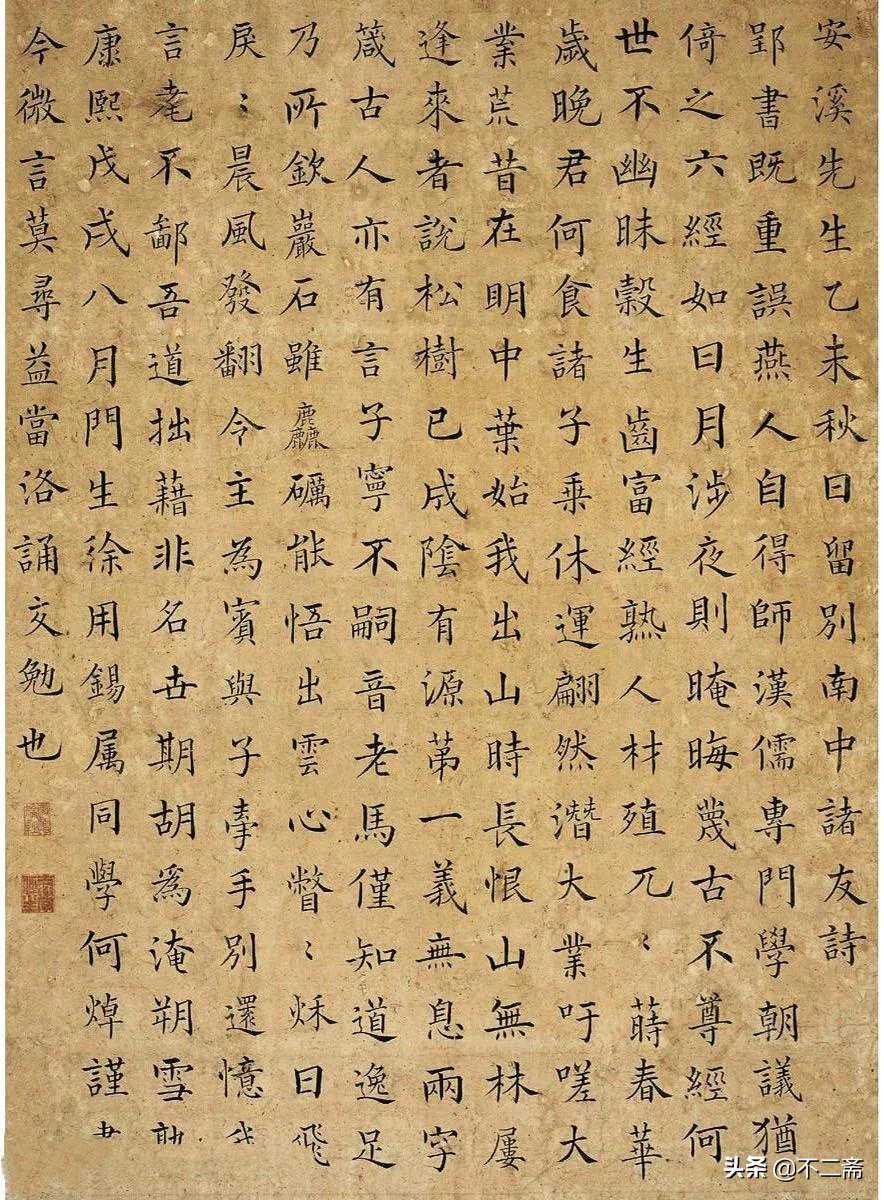 安溪先生乙未秋日留别南中諸友詩
郢書既重誤燕人自得師漢儒專門學朝議猶
倚之六經如日月涉夜則晻晦蔑古不尊經何
世不幽昧穀生齒富經熟人材殖兀〻蒔春華
歲晚君何食諸子乗休運翩然潛大業吁嗟大
業荒昔在明中葉始我出山時長恨山無林屢
逢來者說松樹已成陰有源第一義無息兩字
箴古人亦有言子寧不嗣音老馬僅知道逸足
乃所欽巖石雖麤礪能悟出雲心瞥〻秌日飛
戾〻晨風發翻令主為賓與子牽手別還憶
言耄不鄙吾道拙藉非名世期胡為淹朔雪
康熙戊戌八月門生徐用錫属同學何焯謹
今微言莫尋益當洛誦交勉也
头条 @不二斋